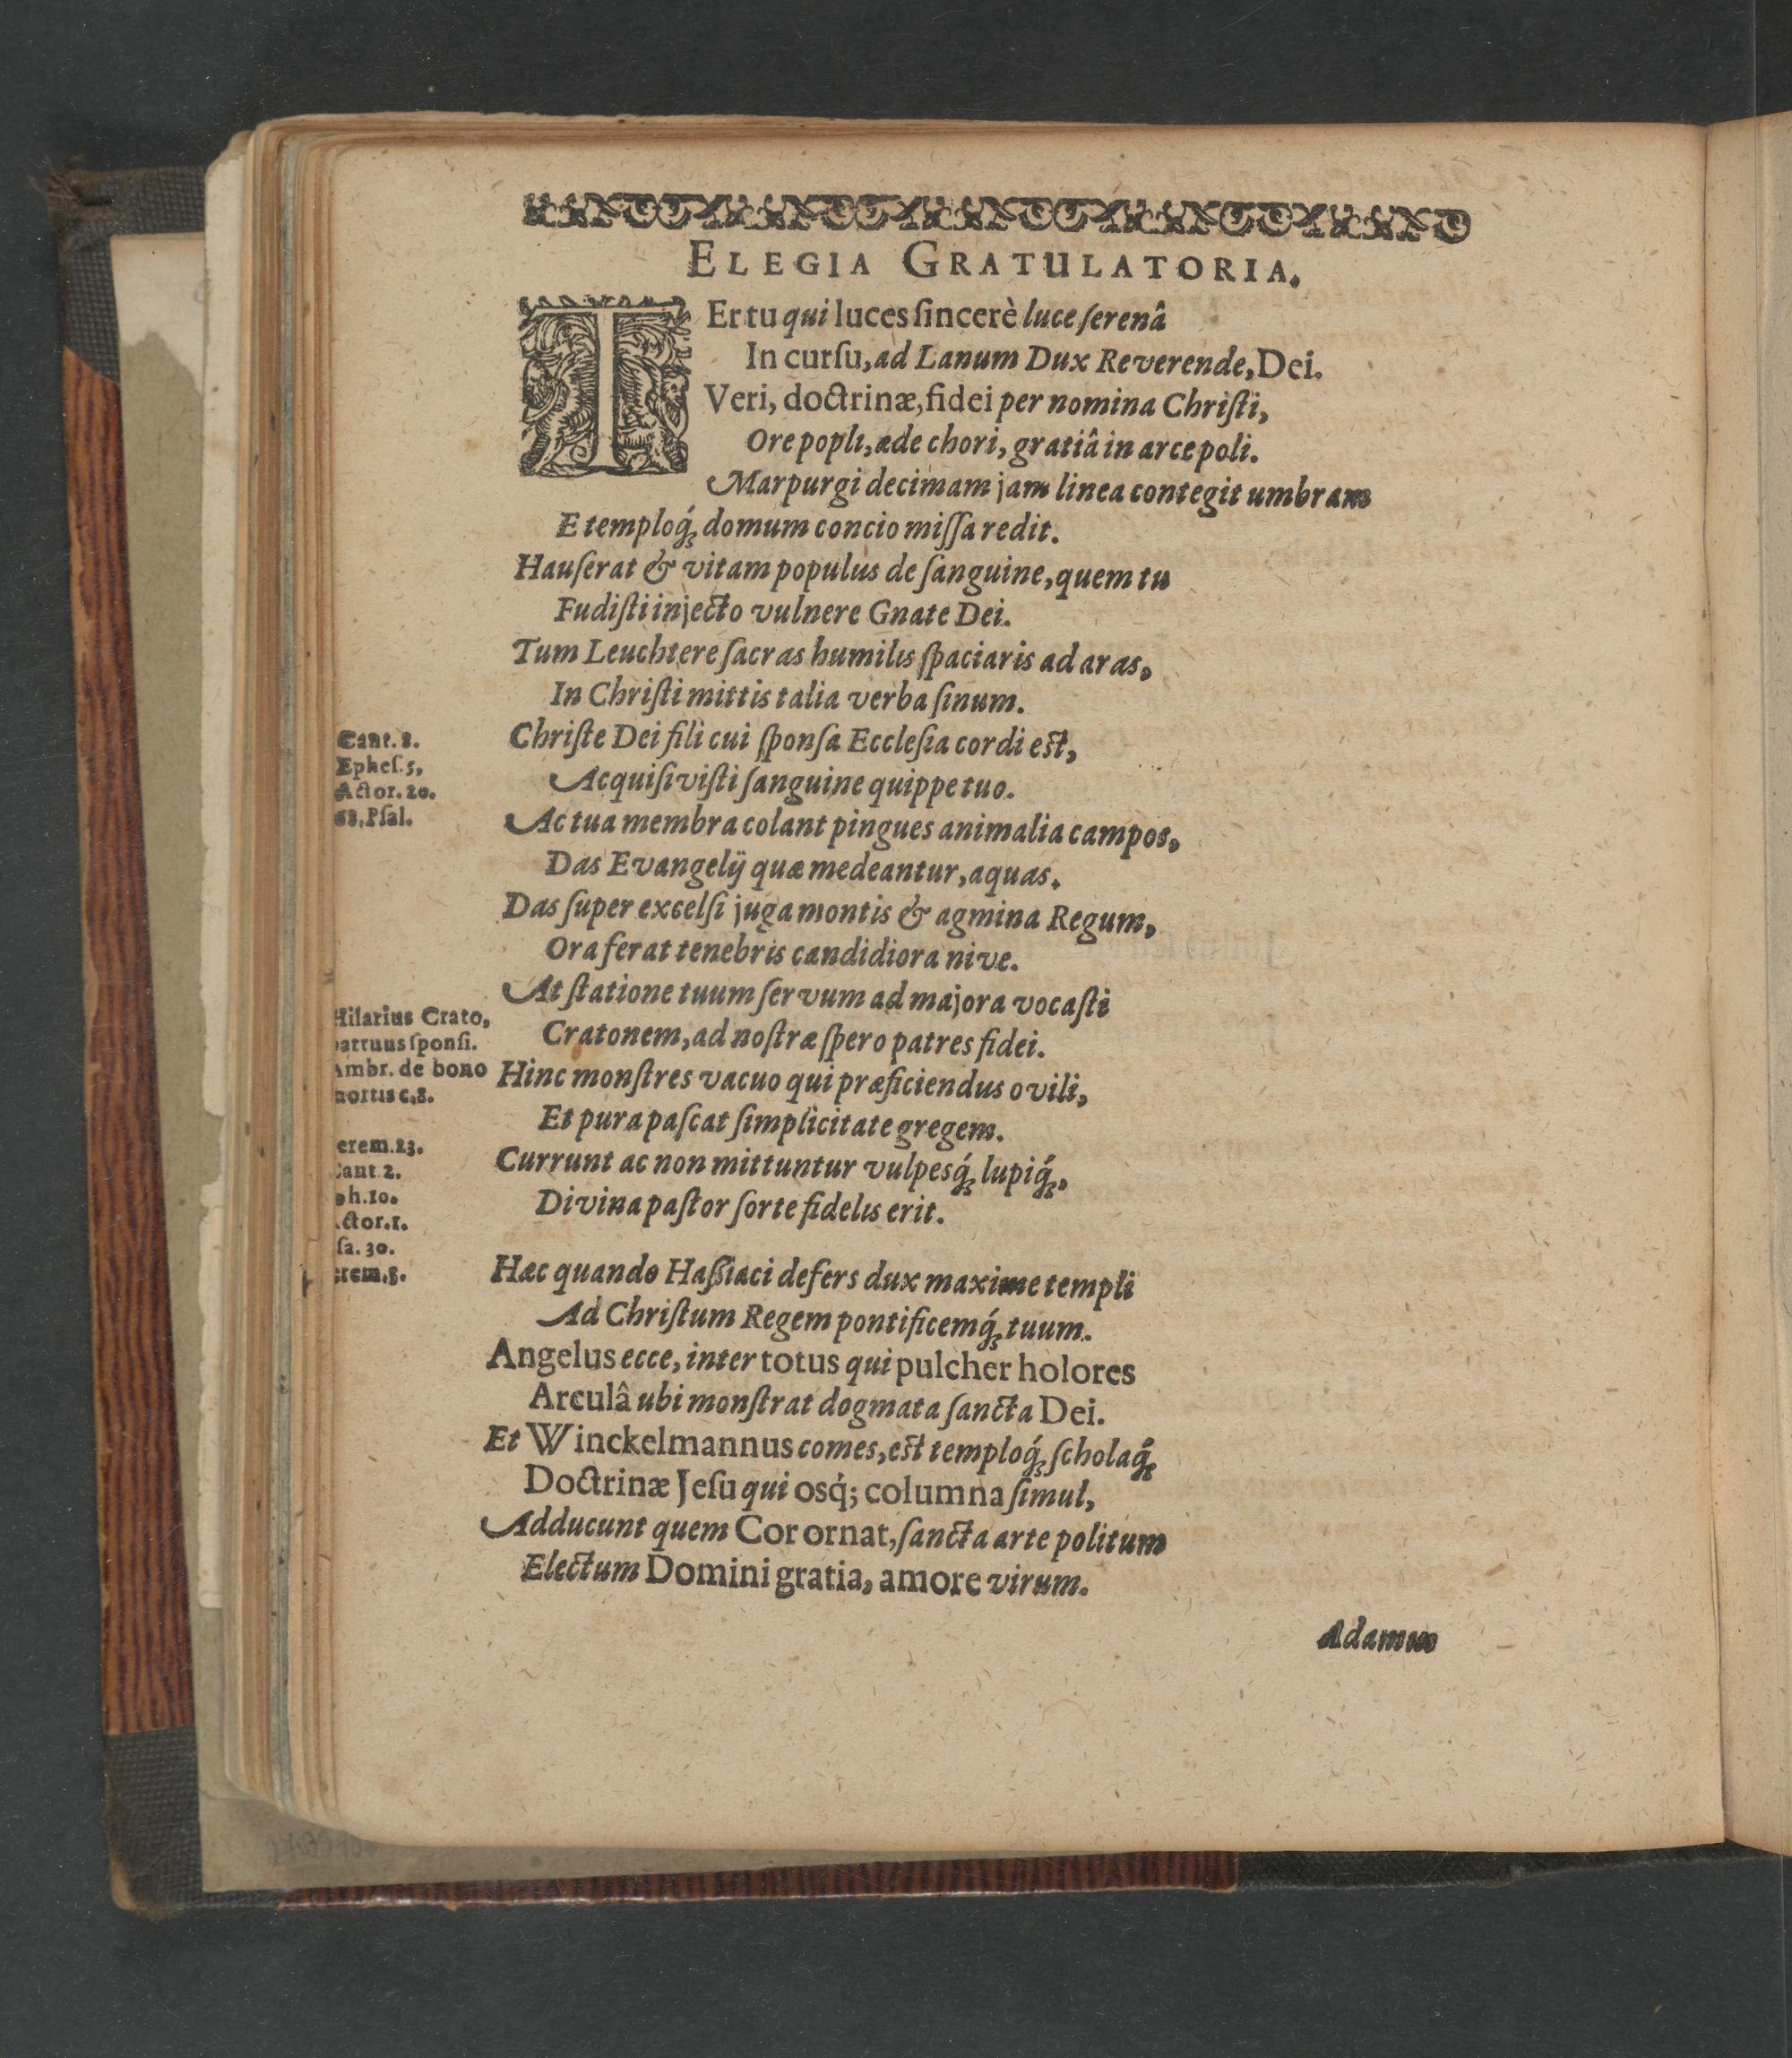 ELEGIA GRATULATORIA.
TEr tu qui luces ſincerè luce ſerenâ
In curſu, ad Lanum Dux Reverende, Dei.
Veri, doctrinæ, fidei per nomina Chriſti,
Ore popli, æde chori, gratiâ in arce poli.
Marpurgi decimam jam linea contegit umbram
E temploq́; domum concio miſſa redit.
Hauſerat & vitam populus de ſanguine, quem tu
Fudiſti injecto vulnere Gnate Dei.
Tum Leuchtere ſacras humilis ſpaciaris ad aras,
In Chriſti mittis talia verba ſinum.
Chriſte Dei fili cui ſponſa Eccleſia cordi est,
Acquiſiviſti ſanguine quippe tuo.
Ac tua membra colant pingues animalia campos,
Das Evangelij quæ medeantur, aquas.
Das ſuper excelſi juga montis & agmina Regum,
Ora ferat tenebris candidiora nive.
At ſtatione tuum ſervum ad majora vocaſti
Cratonem, ad noſtræ ſpero patres fidei.
Hinc monſtres vacuo qui præficiendus ovili,
Et pura paſcat ſimplicitate gregem.
Currunt ac non mittuntur vulpesq́; lupiq́;,
Divina paſtor ſorte fidelis erit.
Hæc quando Haßiaci defers dux maxime templi
Ad Chriſtum Regem pontificemq́; tuum.
Angelus ecce, inter totus qui pulcher holores
Arculâ ubi monſtrat dogmata ſancta Dei.
Et Winckelmannus comes, est temploq́; ſcholaq́;
Doctrinæ Jeſu qui osq́; columna ſimul,
Adducunt quem Cor ornat, ſancta arte politum
Electum Domini gratia, amore virum.
Adamum
Cant. 8.
Epheſ. 5,
Actor. 20.
68, Pſal.
Hilarius Crato,
patruus ſponſi.
Ambr. de bono
mortis c. 8.
erem. 23.
Cant 2.
oh. 10.
Actor. 1.
ſa. 30.
erem. 8.